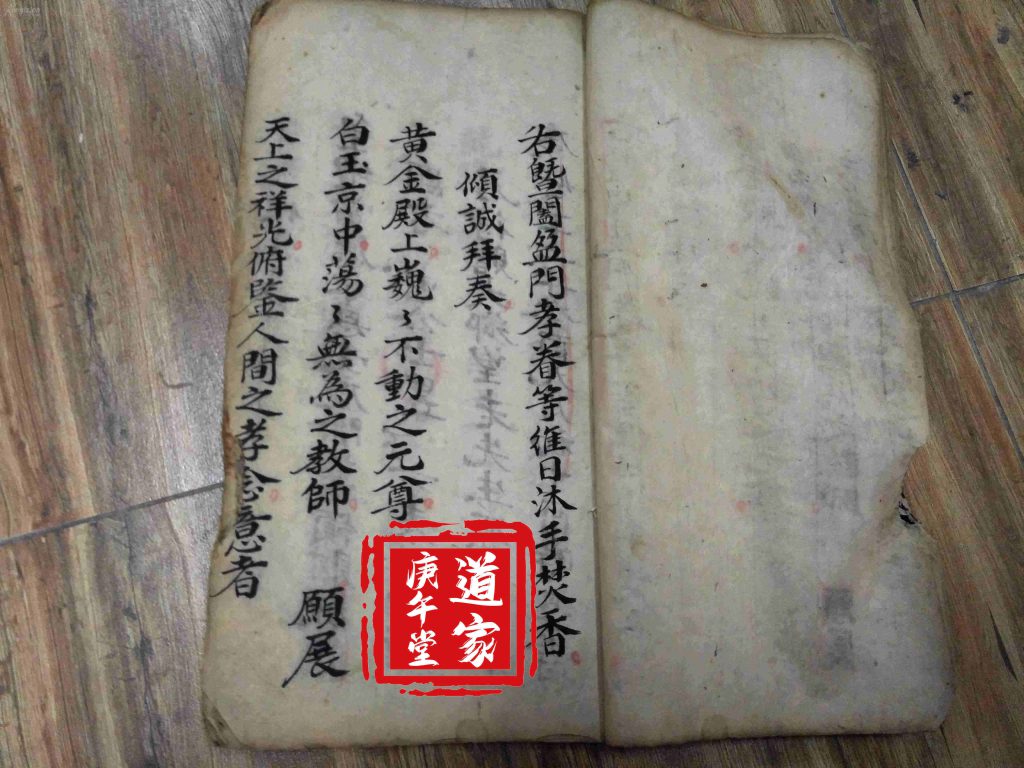 右暨闔盈門孝眷等維日沐手焚香
傾誠拜奏
黃金殿上巍〻不動之元尊
白玉京中蕩〻無為之教師 願展
天上之祥光俯鑒人間之孝念意者
道家
庚午堂